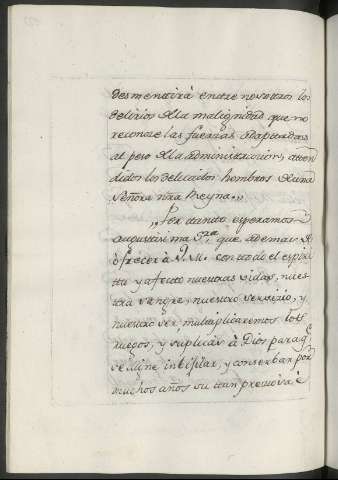 desmentirá entre nosotros los
delirios de la malignidad que no
reconoce las fuerzas adaptadas
al peso de la administracion, aten
didos los delicados hombros de una
Señora ntra Reyna.,,
,,Por tanto esperamos
augustisima Sra. que ademas de
ofrecer à V.M. con todo el espiri
tu y afecto nuestras vidas, nues
tra sangre, nuestro servicio, y
nuestro ser, multiplicaremos los
ruegos, y suplicas à Dios para q.
se digne inspirar, y conserbar por
muchos años su tan preciosa è